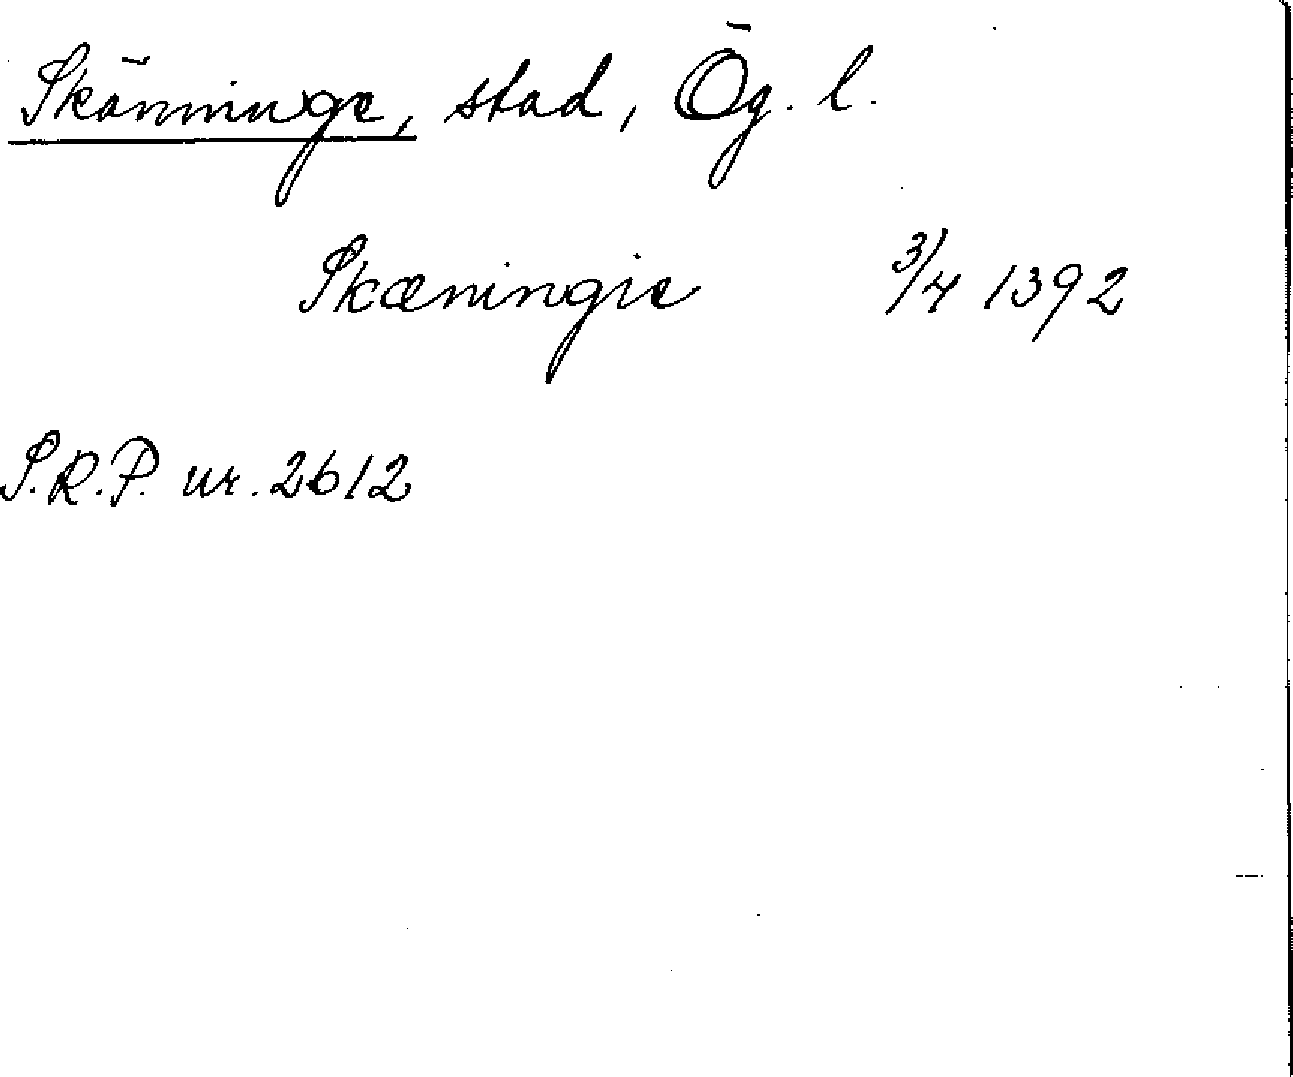 Skänninge, stad, Ög. l.
Skæningie 3/4 1392
S.R.P. nr. 2612